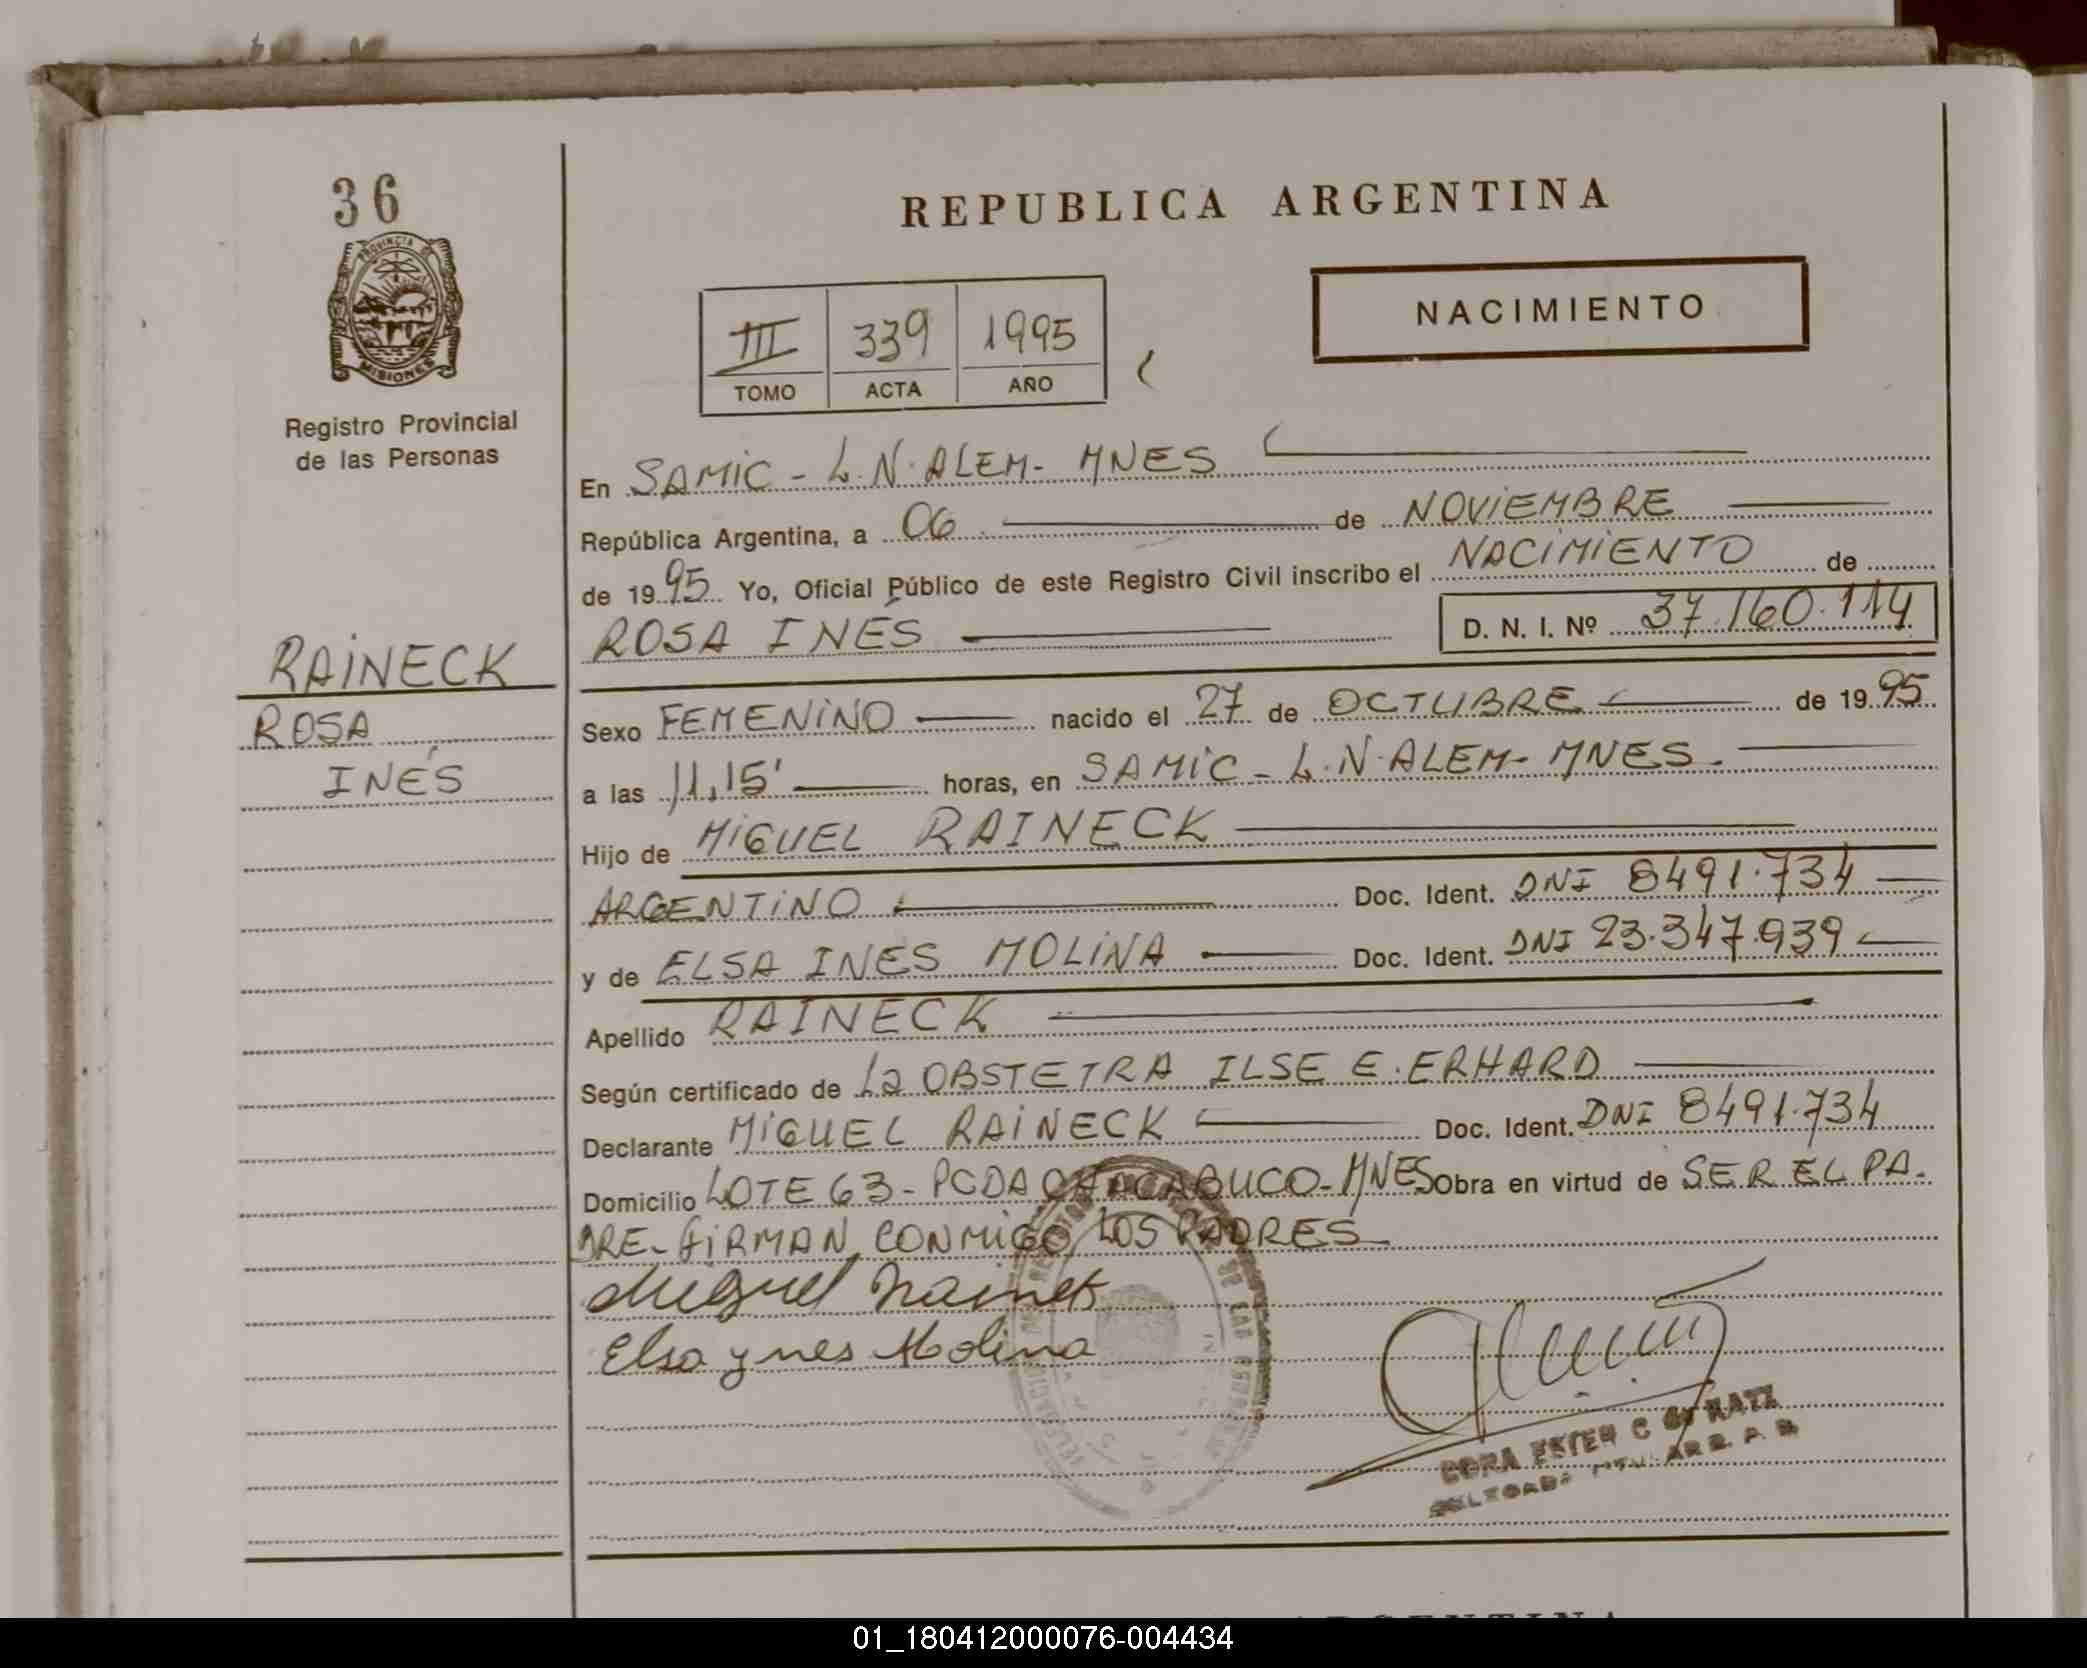 36
REPUBLICA ARGENTINA
PROVINCIA DE
MISIONES
Registro Provincial
de las Personas
III 339 1995
TOMO ACTA AÑO
NACIMIENTO
En SAMIC - L.N. ALEM - MNES
República Argentina, a 06 de NOVIEMBRE
de 1995 Yo, Oficial Público de este Registro Civil inscribo el NACIMIENTO de
ROSA INÉS D. N. I. Nº 37.160.114
RAINECK
ROSA
INÉS
Sexo FEMENINO nacido el 27 de OCTUBRE de 1995
a las 11,15' horas, en SAMIC - L.N. ALEM - MNES.
Hijo de MIGUEL RAINECK
ARGENTINO Doc. Ident. DNI 8491.734
y de ELSA INES MOLINA Doc. Ident. DNI 23.347.939
Apellido RAINECK
Según certificado de La OBSTETRA ILSE E. ERHARD
Declarante MIGUEL RAINECK Doc. Ident. DNI 8491.734
Domicilio LOTE 63 - PCDA CHACABUCO - MNES Obra en virtud de SER EL PA-
DRE - FIRMAN CONMIGO LOS PADRES
Miguel Raineck
Elsa ynes Molina
CORA ESTER C
01_180412000076-004434